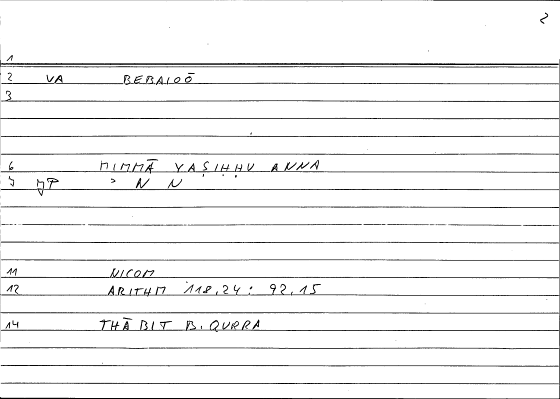 2
1
2 VA BEBAIOŌ
3
6 MIMMĀ YAṢIḤḤU ANNA
N N
11 NICOM
12 ARITHM 118,24 : 92,15
14 THĀBIT B. QURRA